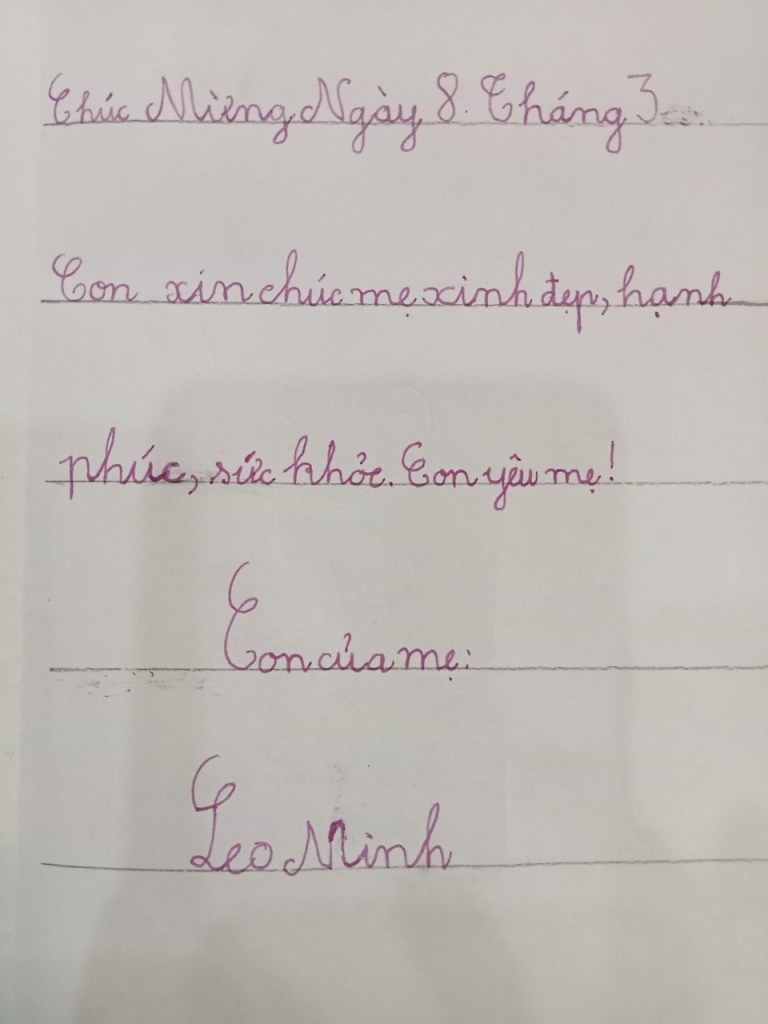 Chúc Miừng Ngày 8. Tháng 3
Con xin chúc mẹ xinh đẹp, hạnh
phúc, sức khỏe. Con yêu mẹ!
Con của mẹ:
Leo Minh